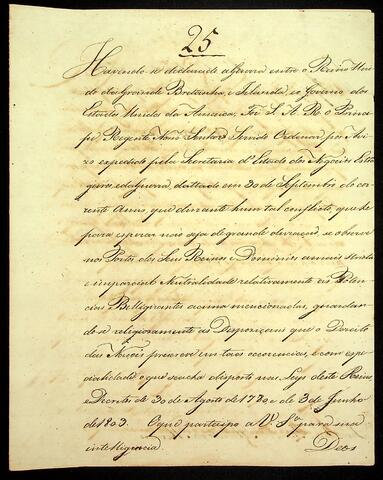 25
Havendo-se declarado a Guerra entre o Reino Uni-
do da Grande Bretanha, e Irlanda, e o Governo dos
Estados Unidos da America, Foi S. A. R. o Princi-
pe Regente Nosso Senhor Servido Ordenar por Avi-
zo expedido pela Secretaria d'Estado dos Negocios Estran
geiros e da Guerra, dattado em 30 de Septembro do cor-
rente Anno, que durante hum tal conflicto, que he
para esperar não seja de grande duração, se observe
nos Portos dos Seus Reinos e Dominios a mais stricta
e imparcial Neutralidade relativamente às Poten-
cias Belligerantes acima mencionadas, guardan-
do-se religiosamente as Disposiçoens que o Direito
das Naçoes prescreve em taes occorrencias, e com espe-
cialidade o que se acha disposto nas Leys deste Reino,
e Decretos de 30 de Agosto de 1780 e de 3 de Junho
de 1803. O que participo a V. S.ª para sua
intelligencia. Deos